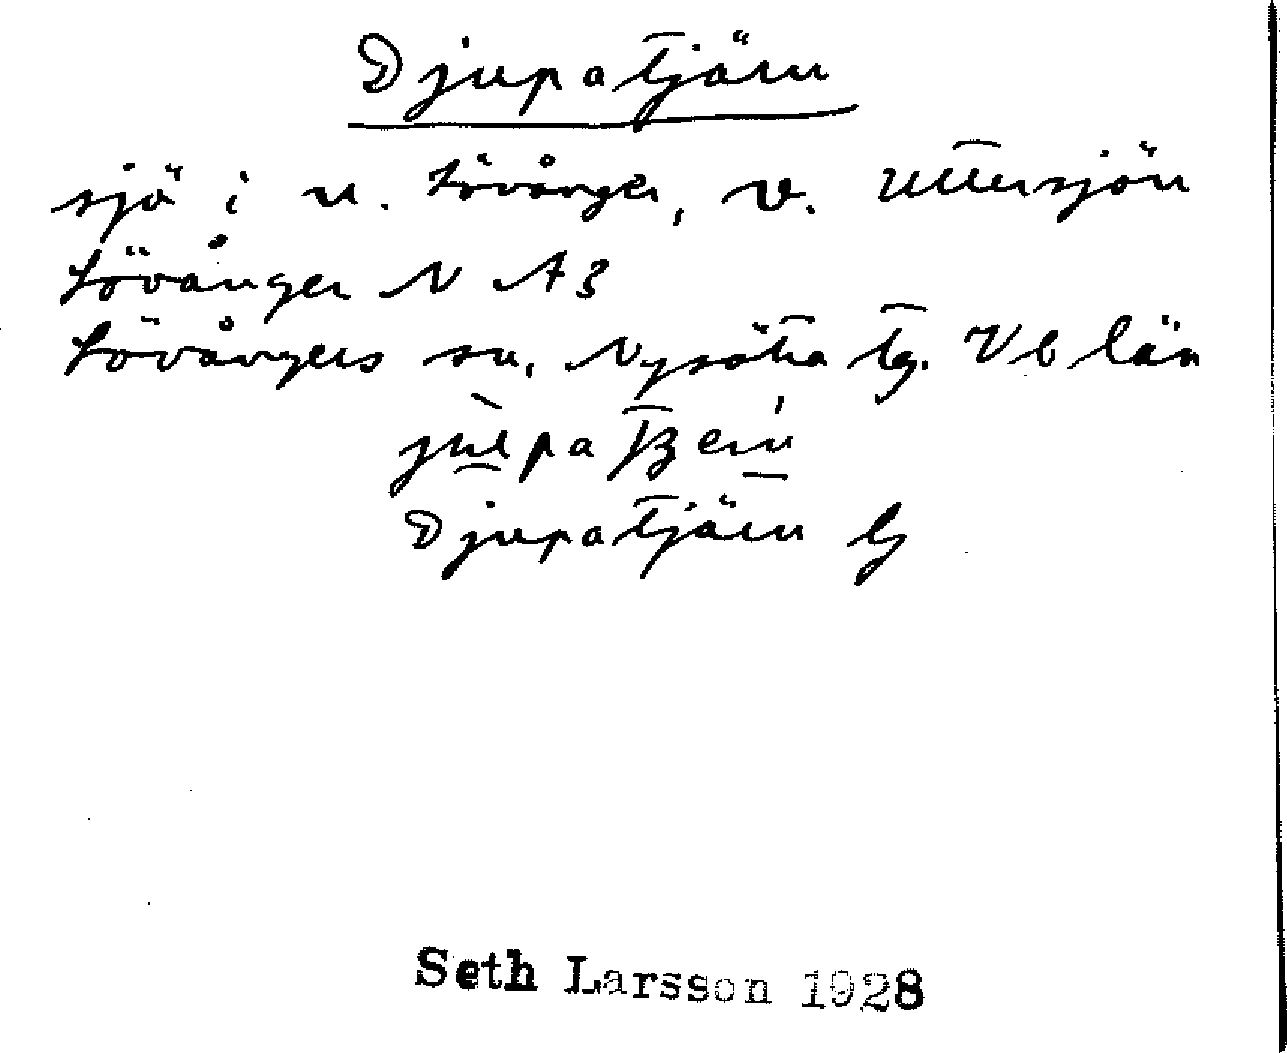 Djupatjärn
sjö i n. Lövånger, v. Uttersjön
Lövånger N A3
Lövångers sn. Nysätra tg. Vb län
Djupatjärn lj
Seth Larsson 1928